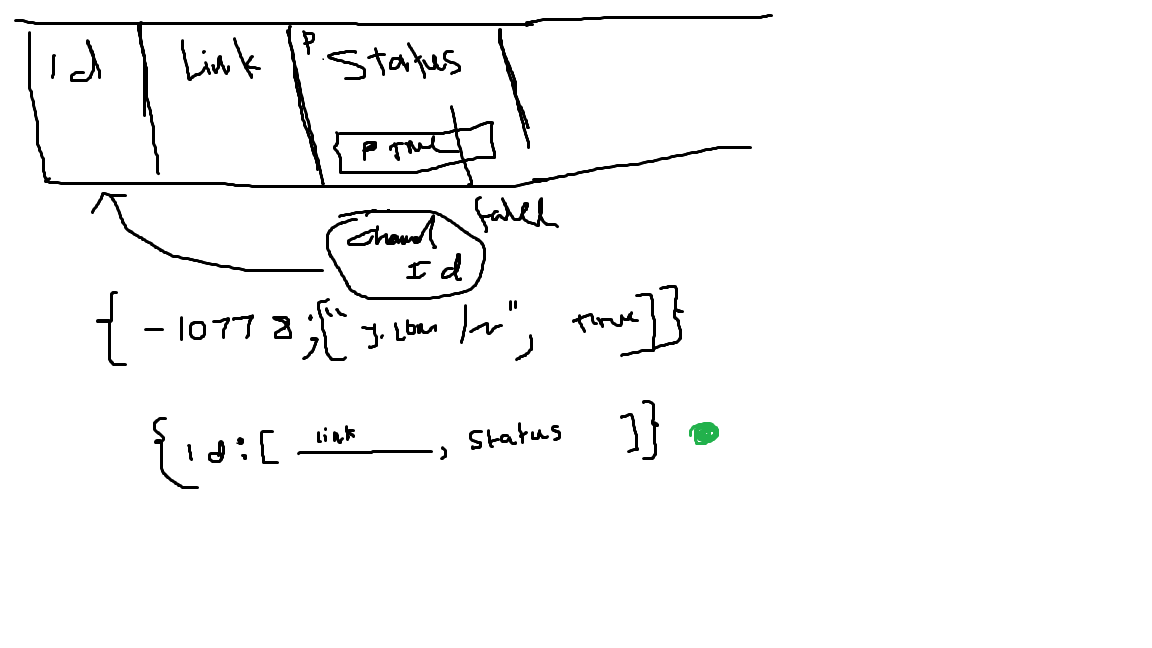 Id Link P. Status
P True
false
Channel
Id
{ -1077 8 ; ["y.com/v", true]}
{id: [ link , status ]}